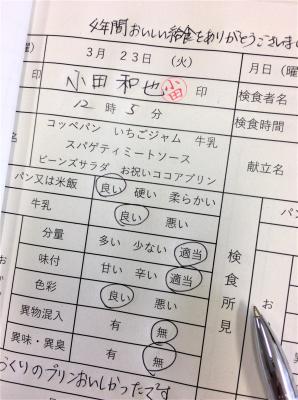 4年間おいしい給食をありがとうございま
曜） 3月 23日 （火） 月日（曜
印 小田和也 小田 印 検食者名
12時5分 検食時間
コッペパン いちごジャム 牛乳
スパゲティミートソース 献立名
ビーンズサラダ お祝いココアプリン
パン又は米飯 良い 硬い 柔らかい パ
牛乳 良い 悪い
分量 多い 少ない 適当 検食所見
味付 甘い 辛い 適当
色彩 良い 悪い お
異物混入 有 無
異味・異臭 有 無
くりのプリンおいしかったです